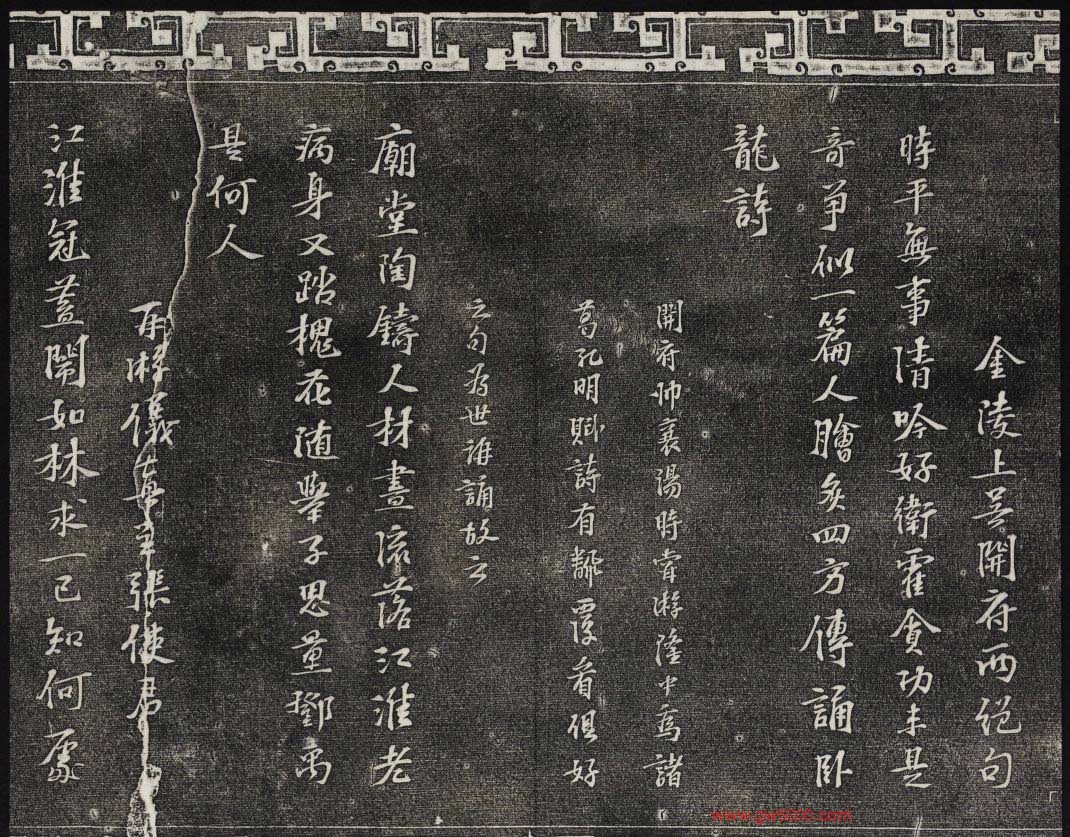 金陵上吴開府兩絕句
時平無事清吟好衛霍貪功未是
奇爭似一篇人膾炙四方傳誦臥
龍詩
開府帅襄陽時嘗游隆中爲諸
葛孔明賦詩有翻覆看俱好
之句为世誦故云
廟堂陶鑄人材盡流落江淮老
病身又踏槐花随舉子思量鄧禹
是何人
再游儀真呈張使君
江淮冠蓋鬧如林求一已知何處